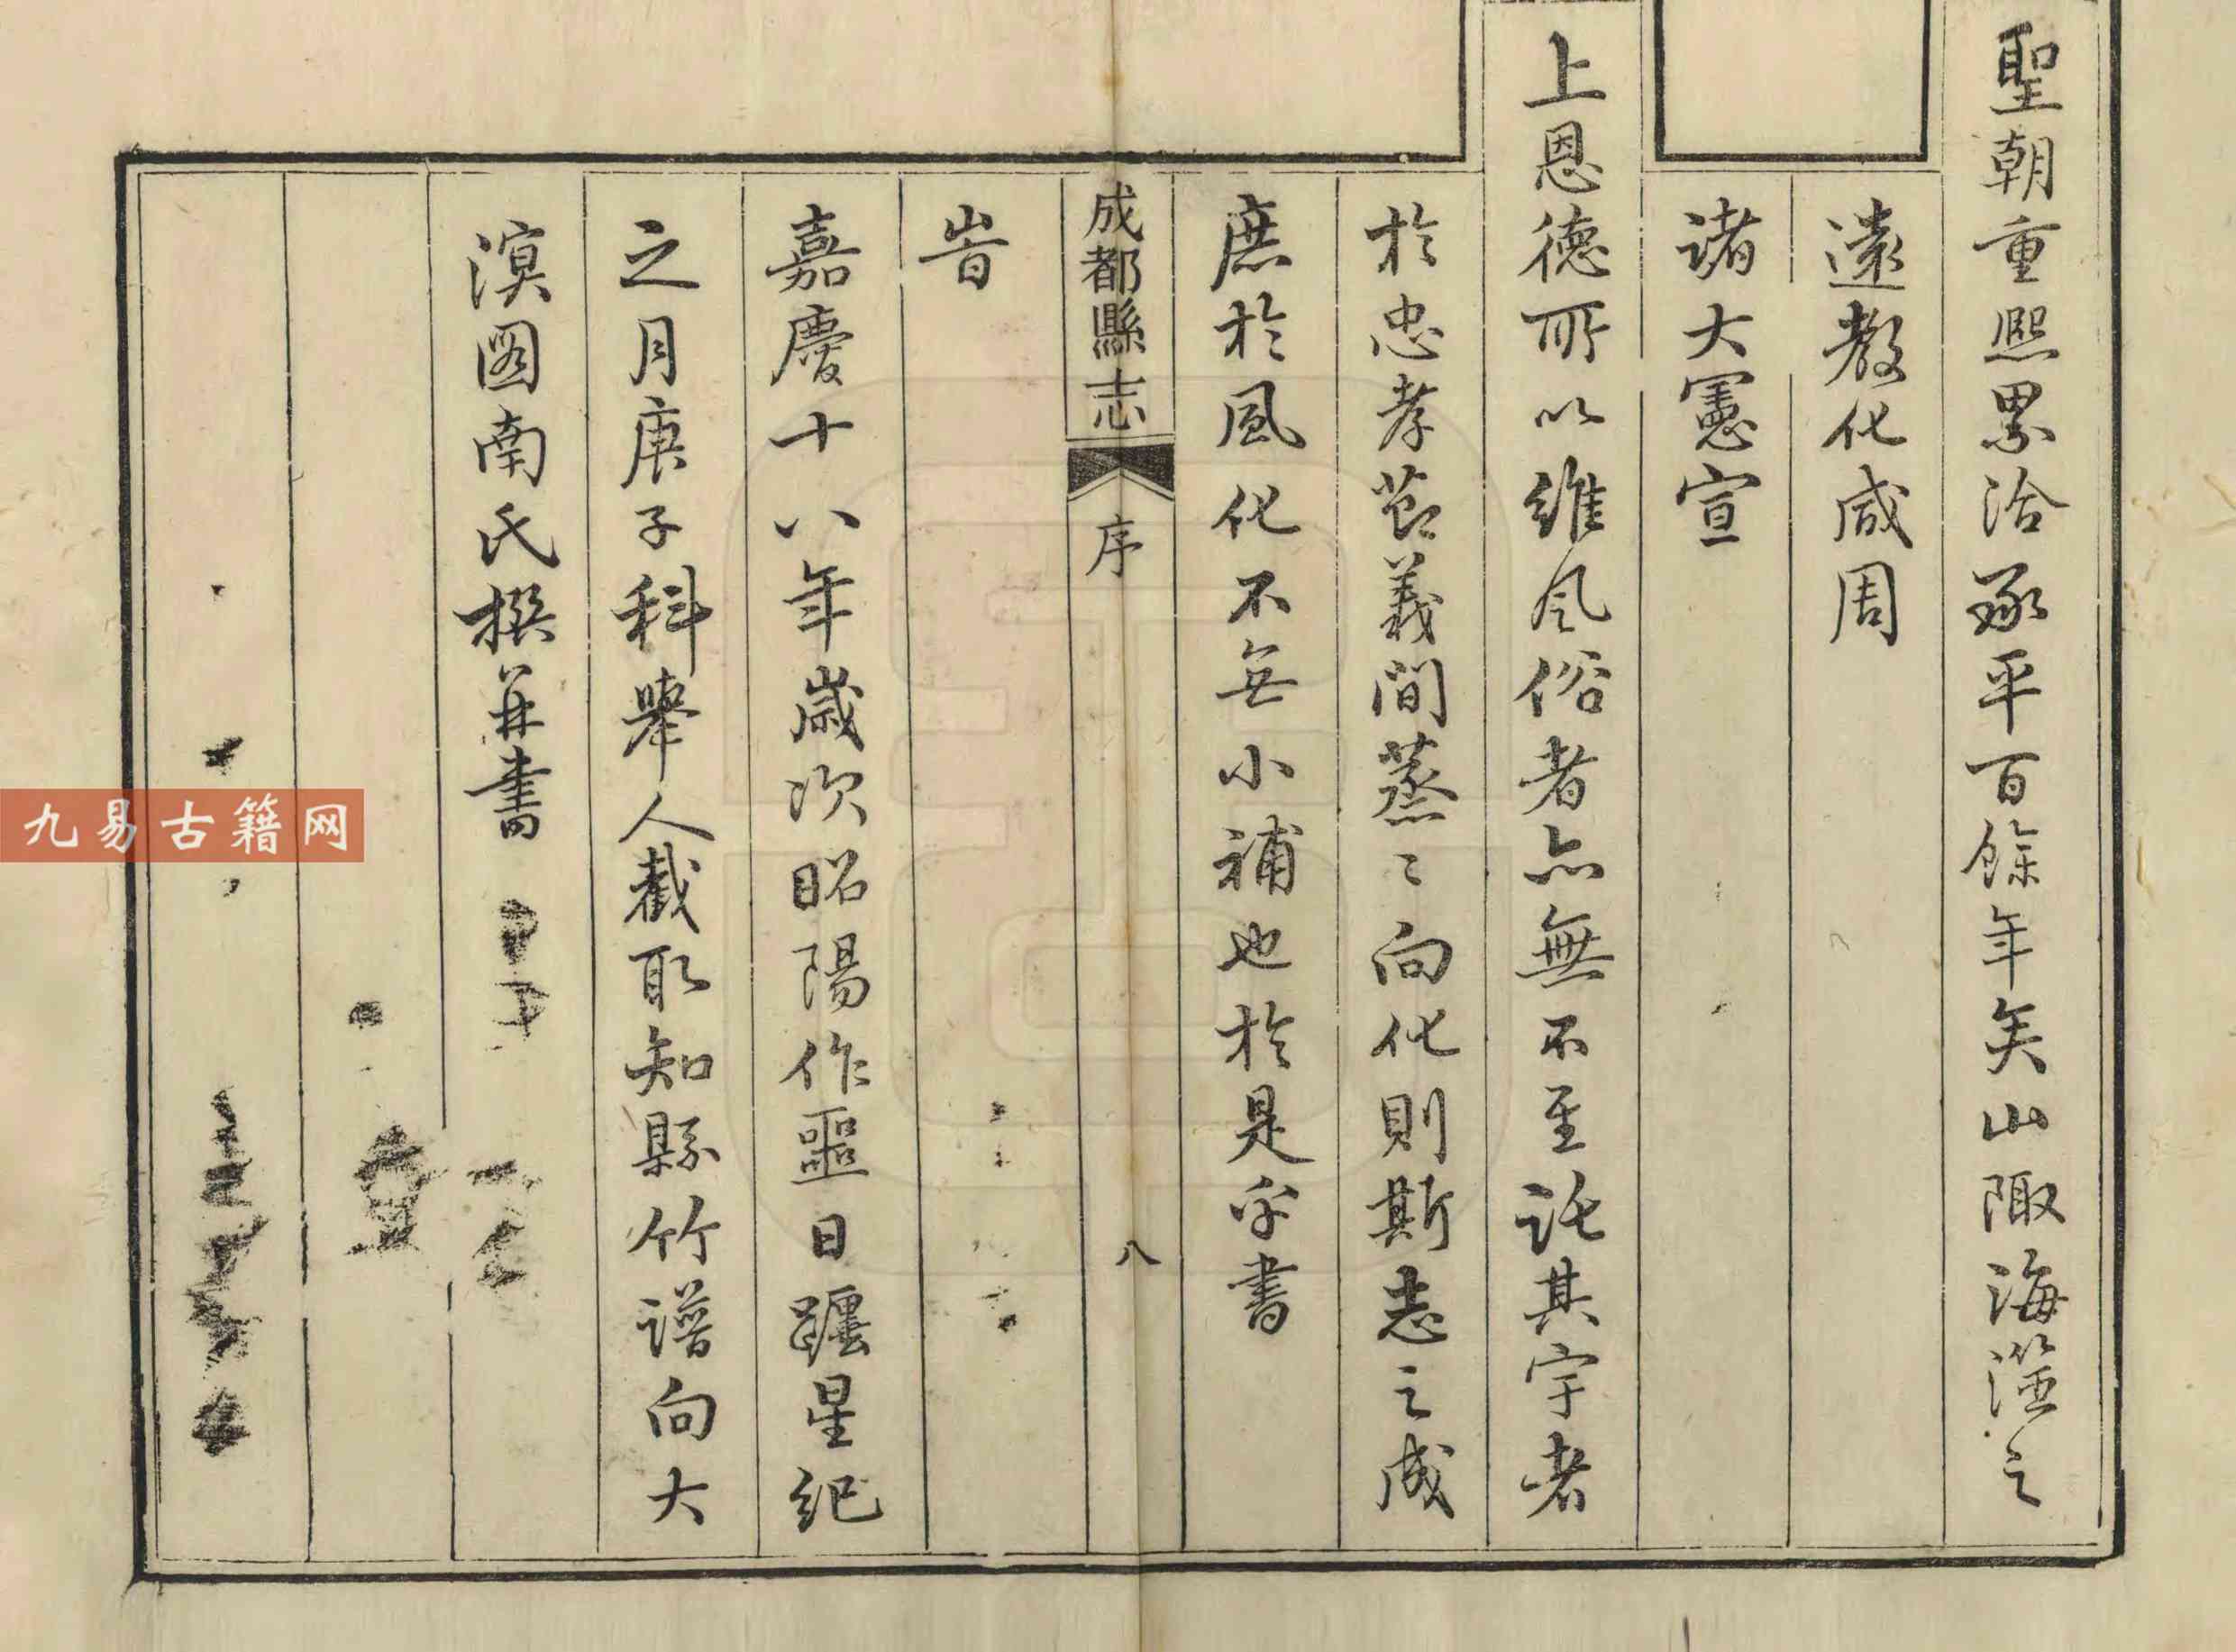 聖朝重熙累洽承平百餘年矣山陬海澨之
遠教化咸周
諸大憲宣
上恩德所以維风俗者亦無不至託其宇者
於忠孝莭義間蒸〻向化則斯志之成
庶於風化不無小補也於是乎書
成都縣志
序
八
旹
嘉慶十八年歲次昭陽作噩日躔星紀
之月庚子科舉人截取知縣竹譜向大
溟圖南氏撰并書
九易古籍网